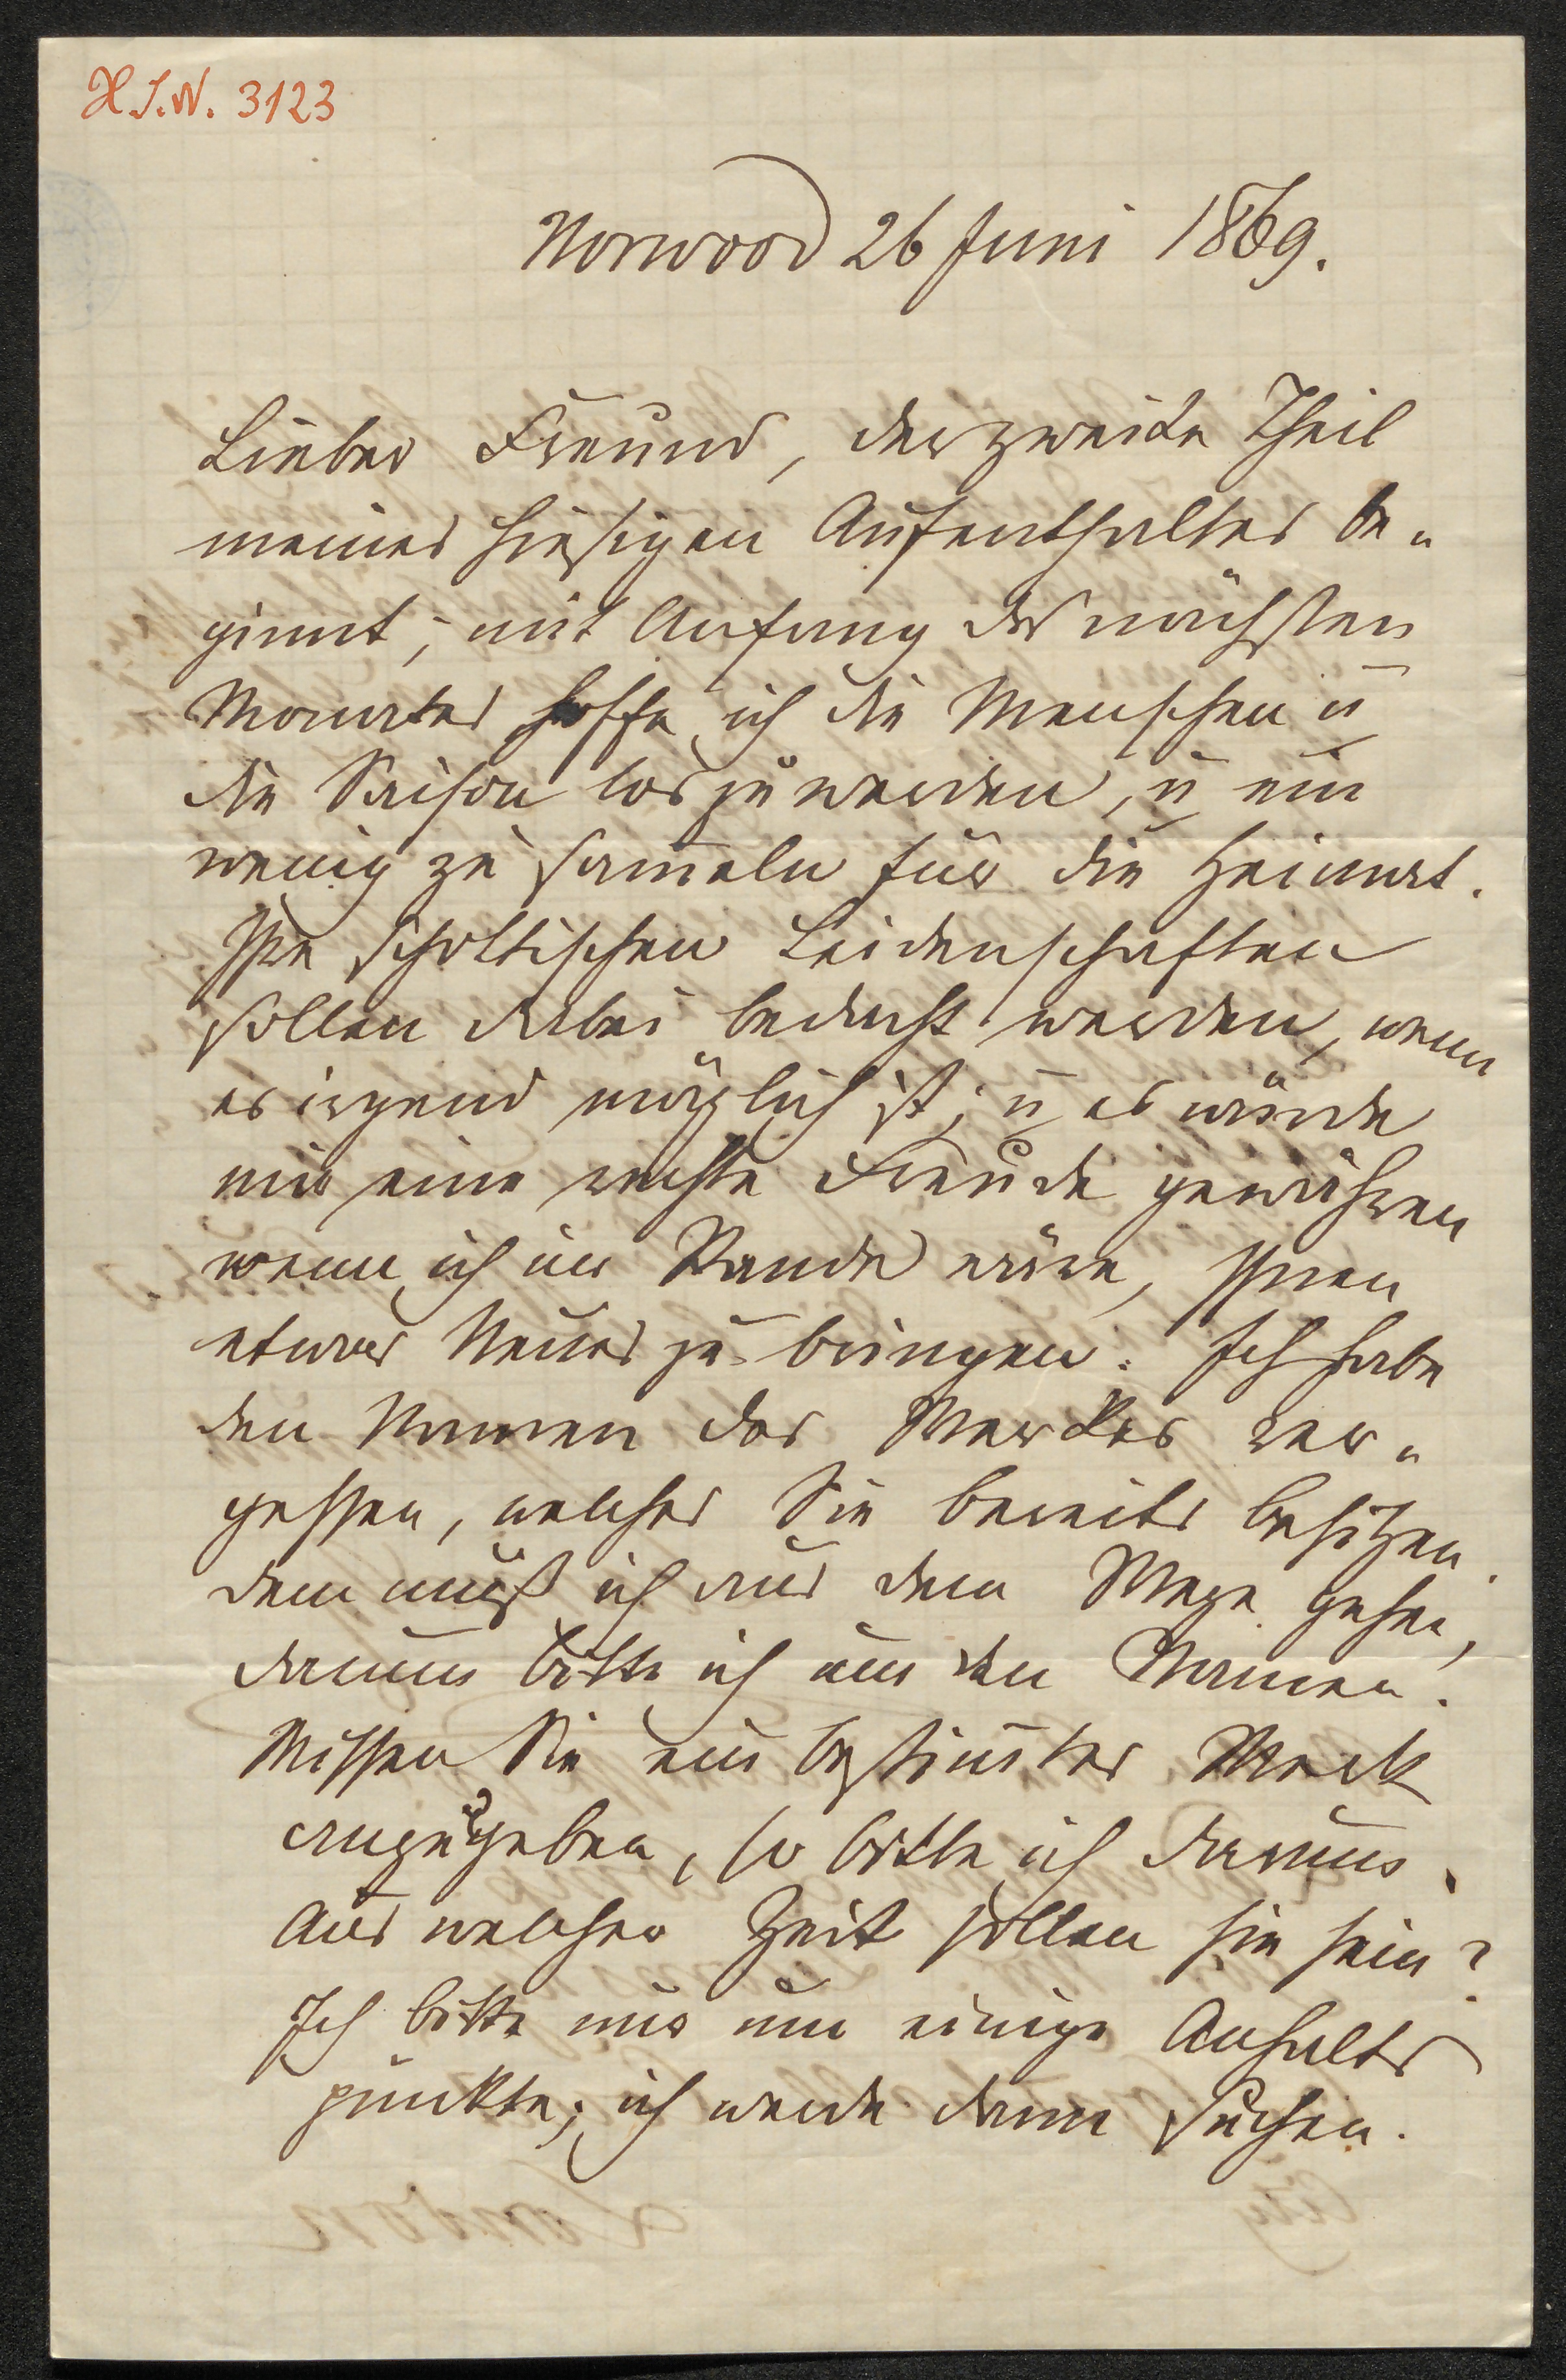 H.I.N. 3123
Norwood 26 Juni 1869.
Lieber Freund, der zweite Theil
meines hiesigen Aufenthaltes be-
ginnt; mit Anfang des nächsten
Monates hoffe ich die Menschen u
die Saison los zu werden, u ein
wenig zu sam̄eln für die Heimat.
Ihre schottischen Leidenschaften
sollen dabei bedacht werden, wenn
es irgend möglich ist; u es würde
mir eine rechte Freude gewähren
wenn ich im Stande wäre, Ihnen
etwas Neues zu bringen. Ich habe
den Namen des Werkes ver-
gessen, welches Sie bereits besitzen.
dem muß ich aus dem Wege gehen,
darum bitte ich um den Namen.
Wissen Sie ein bestim̄tes Werk
anzugeben, so bitte ich darum.
Aus welcher Zeit sollen sie sein?
Ich bitte nur um einige Anhalts
punkte; ich werde dann suchen.